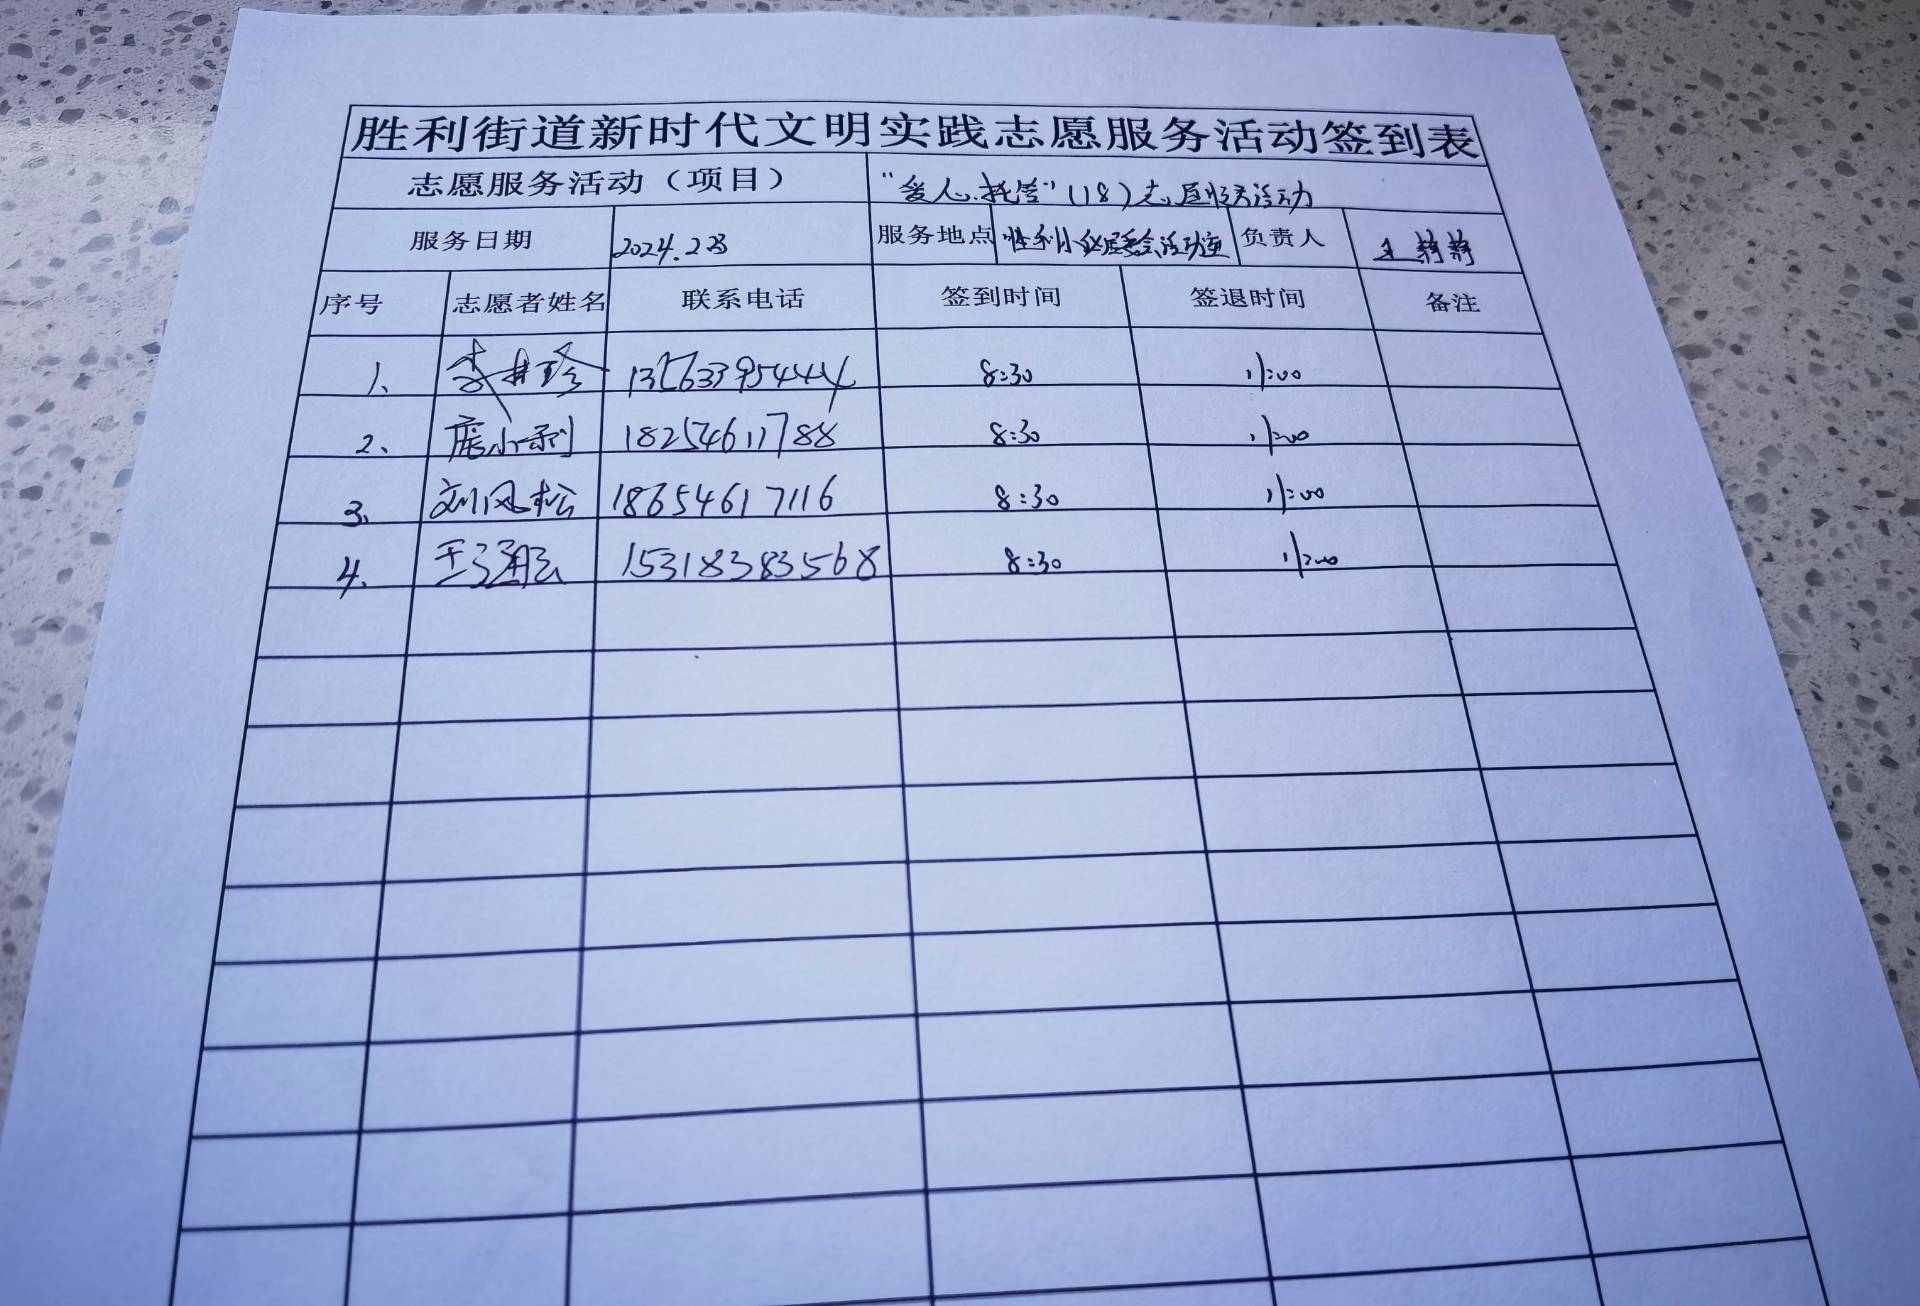 胜利街道新时代文明实践志愿服务活动签到表
志愿服务活动（项目） “爱心托管”（18）志愿服务活动
服务日期 2024.2.23 服务地点 胜利小区居委会活动室 负责人 王静静
序号 志愿者姓名 联系电话 签到时间 签退时间 备注
1、 李井珍 13563395444 8:30 11:00
2、 庞小利 18254611788 8:30 11:00
3、 刘风松 18654617116 8:30 11:00
4、 15318383568 8:30 11:00